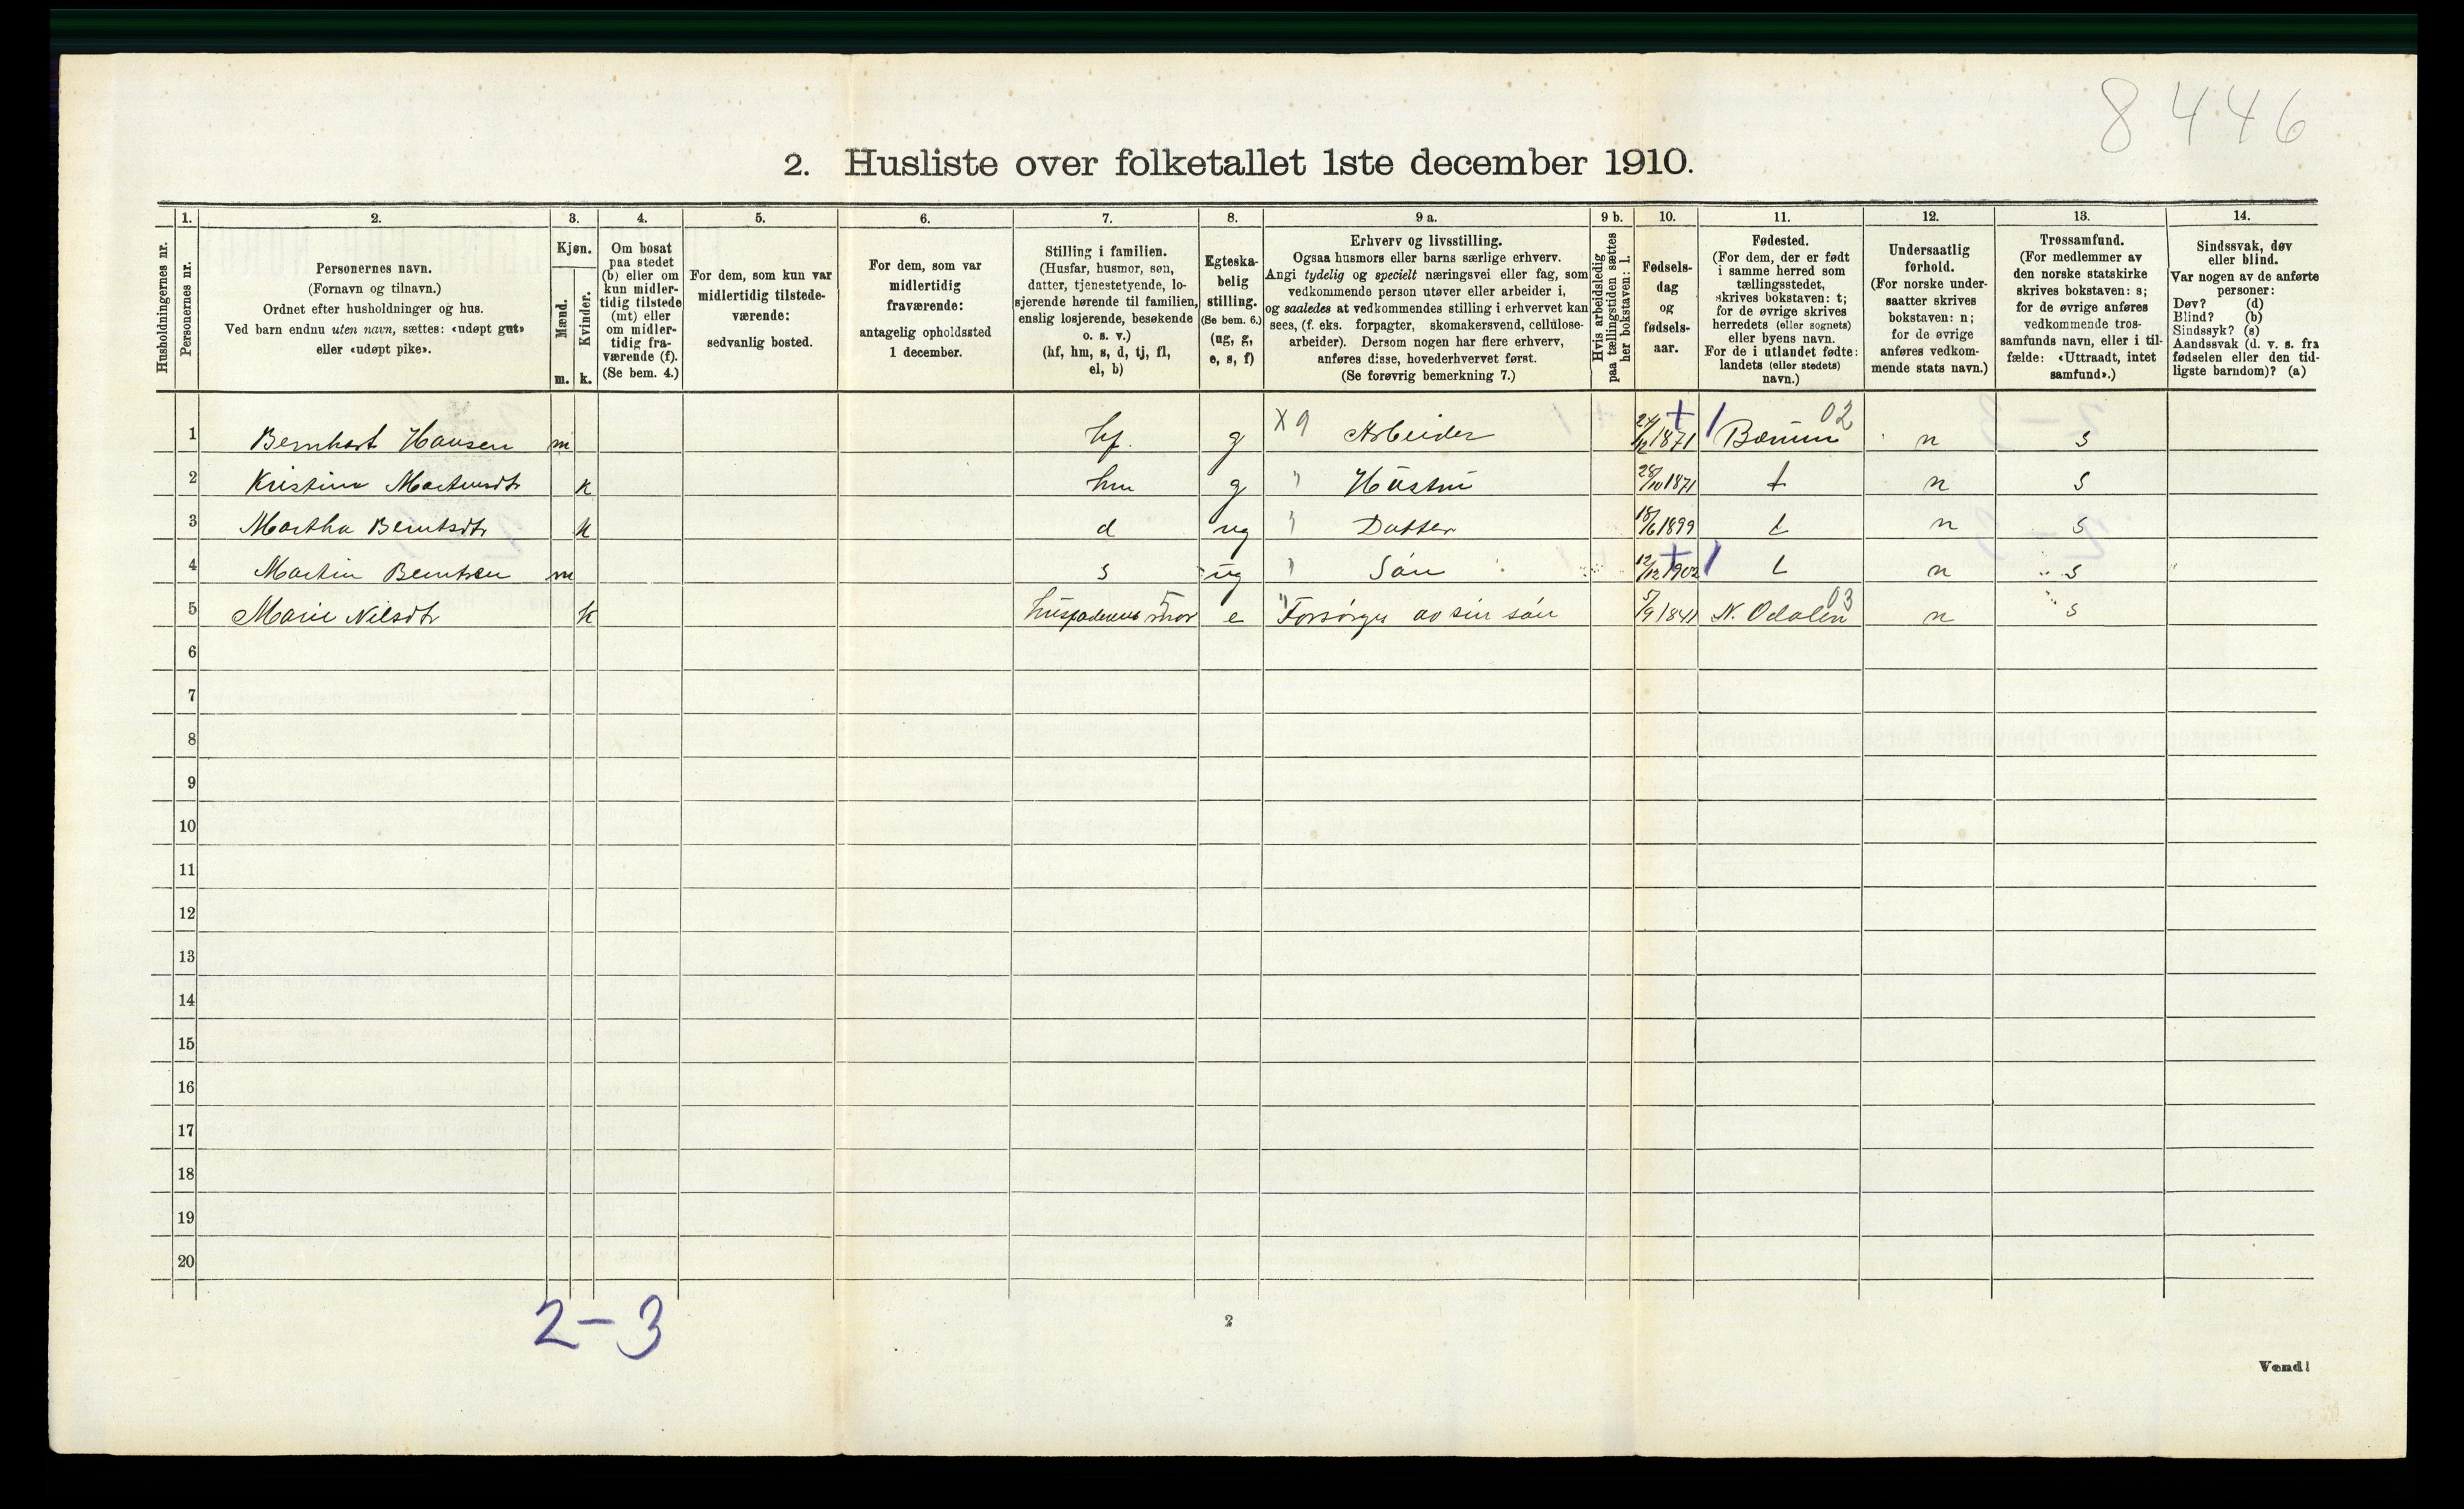 8446
2. Husliste over folketallet 1ste december 1910.
Husholdningernes nr.
1.
Personernes nr.
2.
Personernes navn.
(Fornavn og tilnavn.)
Ordnet efter husholdninger og hus.
Ved barn endnu uten navn, sættes: «udøpt gut»
eller «udøpt pike».
3.
Kjøn.
Mænd.
m.
Kvinder.
k.
4.
Om bosat
paa stedet
(b) eller om
kun midler-
tidig tilstede
(mt) eller
om midler-
tidig fra-
værende (f).
(Se bem. 4.)
5.
For dem, som kun var
midlertidig tilstede-
værende:
sedvanlig bosted.
6.
For dem, som var
midlertidig
fraværende:
antagelig opholdssted
1 december.
7.
Stilling i familien.
(Husfar, husmor, søn,
datter, tjenestetyende, lo-
sjerende hørende til familien,
enslig losjerende, besøkende
o. s. v.)
(hf, hm, s, d, tj, fl,
el, b)
8.
Egteska-
belig
stilling.
(Se bem. 6.)
(ug, g,
e, s, f)
9 a.
Erhverv og livsstilling.
Ogsaa husmors eller barns særlige erhverv.
Angi tydelig og specielt næringsvei eller fag, som
vedkommende person utøver eller arbeider i,
og saaledes at vedkommendes stilling i erhvervet kan
sees, (f. eks. forpagter, skomakersvend, cellulose-
arbeider). Dersom nogen har flere erhverv,
anføres disse, hovederhvervet først.
(Se forøvrig bemerkning 7.)
9 b.
Hvis arbeidsledig
paa tællingstiden sættes
her bokstaven: l.
10.
Fødsels-
dag
og
fødsels-
aar.
11.
Fødested.
(For dem, der er født
i samme herred som
tællingsstedet,
skrives bokstaven: t;
for de øvrige skrives
herredets (eller sognets)
eller byens navn.
For de i utlandet fødte:
landets (eller stedets)
navn.)
12.
Undersaatlig
forhold.
(For norske under-
saatter skrives
bokstaven: n;
for de øvrige
anføres vedkom-
mende stats navn.)
13.
Trossamfund.
(For medlemmer av
den norske statskirke
skrives bokstaven: s;
for de øvrige anføres
vedkommende tros-
samfunds navn, eller i til-
fælde: «Uttraadt, intet
samfund».)
14.
Sindssvak, døv
eller blind.
Var nogen av de anførte
personer:
Døv? (d)
Blind? (b)
Sindssyk? (s)
Aandssvak (d. v. s. fra
fødselen eller den tid-
ligste barndom)? (a)
1 Bernhart Hansen m hf. g X 9 Arbeider 24/12 1871 + 1 Bærum 02 n s
2 Kristine Martinsdtr k hm g " Hustru 28/10 1871 t n s
3 Martha Berntsdtr k d ug " Datter 18/6 1899 t n s
4 Martin Berntsen m s ug " Søn 12/12 1902 + 1 t n s
5 Marie Nilsdtr k husfaderens mor e " Forsørges av sin søn 5/9 1841 N. Odalen 03 n s
6
7
8
9
10
11
12
13
14
15
16
17
18
19
20
2-3
2
Vend!